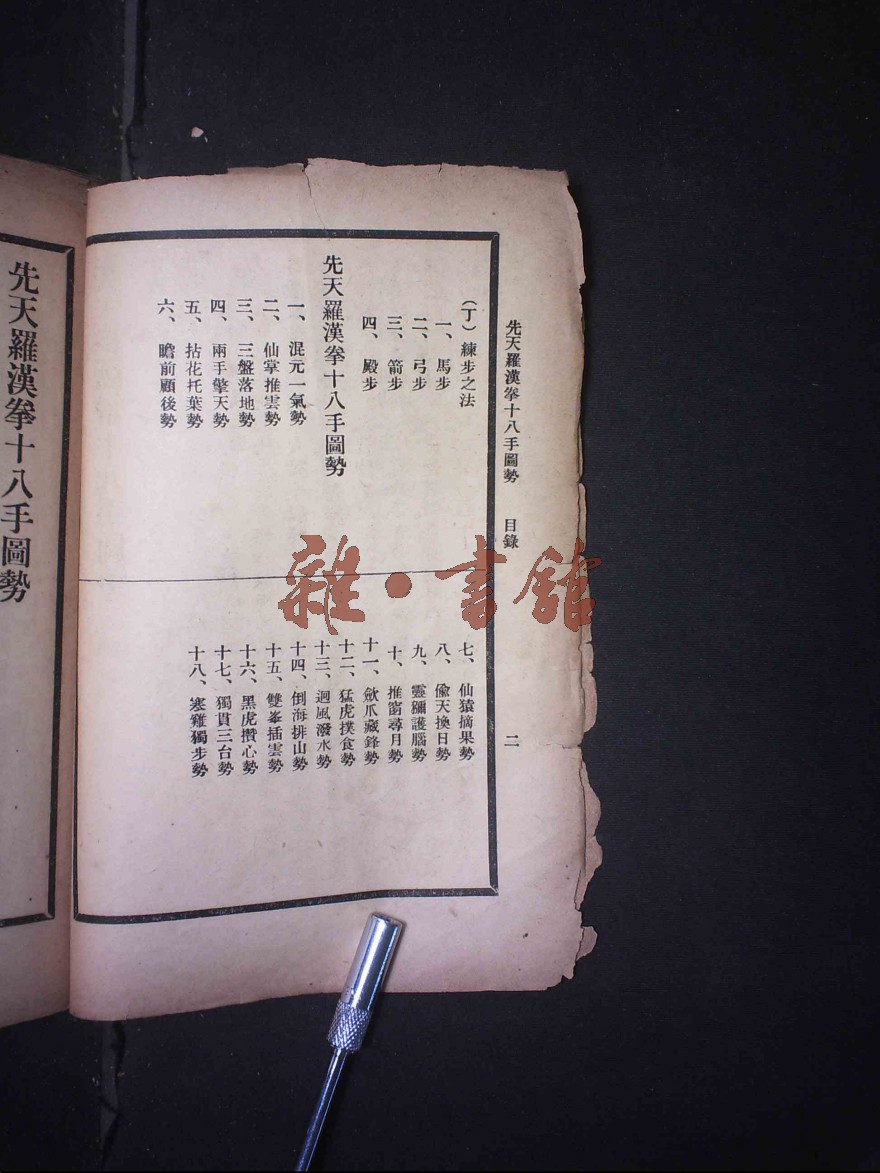 先天羅漢拳十八手圖勢 目錄 二
（丁）練步之法
一、馬步
二、弓步
三、箭步
四、殿步
先天羅漢拳十八手圖勢
一、混元一氣勢
二、仙掌推雲勢
三、三盤落地勢
四、兩手擎天勢
五、拈花托葉勢
六、瞻前顧後勢
七、仙猿摘果勢
八、偸天換日勢
九、靈獼護腦勢
十、推窗尋月勢
十一、歛爪藏鋒勢
十二、猛虎撲食勢
十三、迥風潑水勢
十四、倒海排山勢
十五、雙峯插雲勢
十六、黑虎攢心勢
十七、獨貫三台勢
十八、寒雞獨步勢
先天羅漢拳十八手圖勢
雜·書館